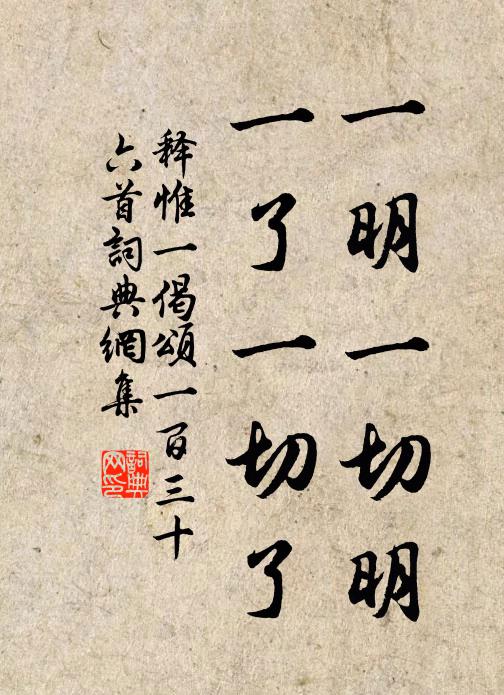 一明一切明
一了一切了
释惟一偈頌一百三十
六首詞典網集
詞典
网印